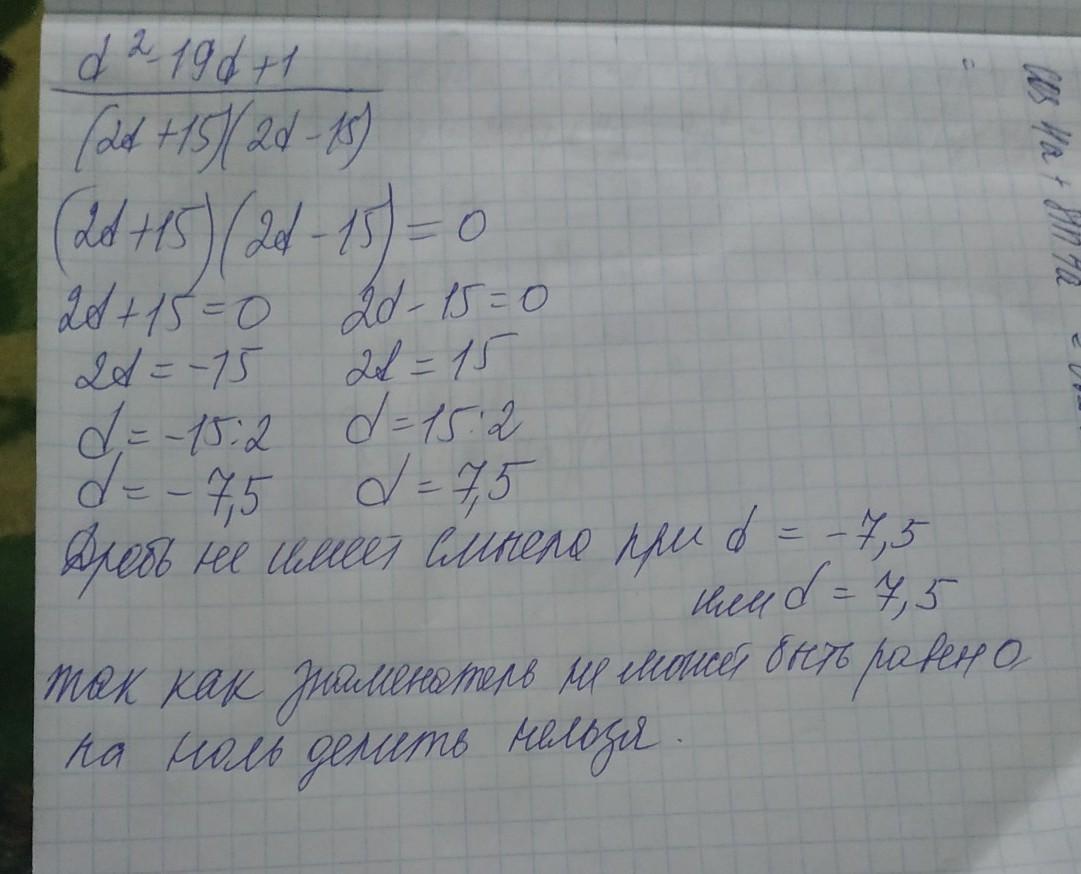 d²-19d+1
(2d+15)(2d-15)
(2d+15)(2d-15)=0
2d+15=0 2d-15=0
2d=-15 2d=15
d=-15:2 d=15:2
d=-7,5 d=7,5
Дробь не имеет смысла при d = -7,5
или d = 7,5
так как знаменатель не может быть равен 0
на ноль делить нельзя.